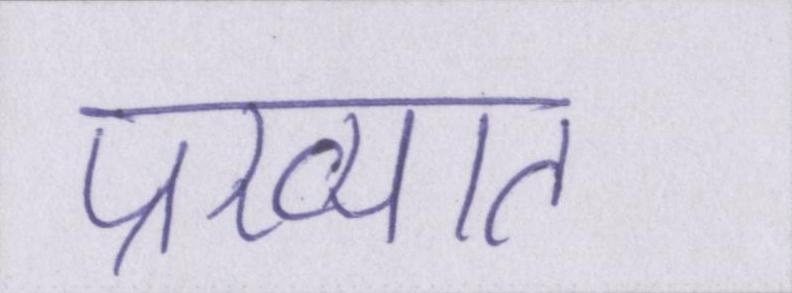 प्रख्यात